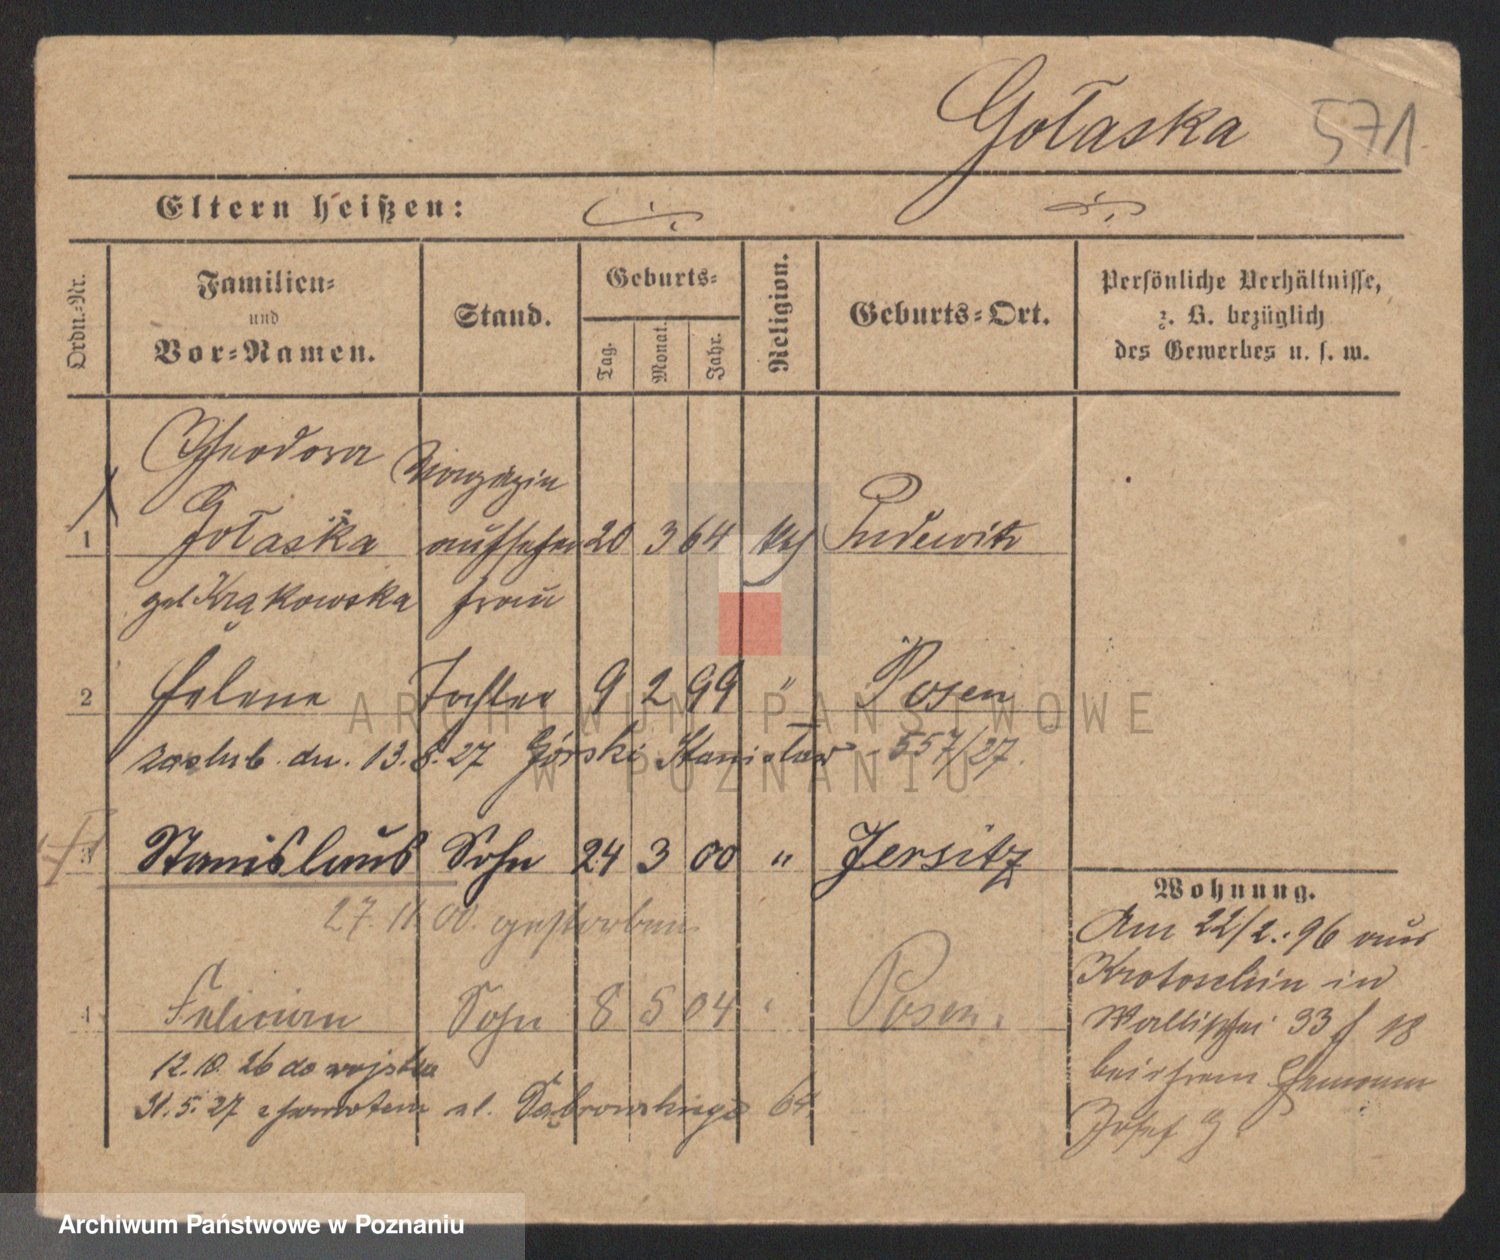 Gołaska 571
Eltern heißen:
Ordn.-Nr.
Familien-
und
Vor-Namen.
Stand.
Geburts-
Tag.
Monat.
Jahr.
Religion.
Geburts-Ort.
Persönliche Verhältnisse,
z. B. bezüglich
des Gewerbes u. s. w.
Theodora Magazin
1 Gołaska aufseher 20 3 64 kth Pudewitz
geb Krąkowska frau
2 Helene Tochter 9 2 99 " Posen
zaślub. dn. 13.8.27 Górski Stanisław - 557/27.
3 Stanislaus Sohn 24 3 00 " Jersitz
27 11. 00. gestorben.
4 Felician Sohn 8 5 04 " Posen.
12. 10. 26 do wojska
31. 5. 27 z powrotem ul. Dąbrowskiego 64
Wohnung.
Am 22/2. 96 aus
Krotoschin in
Wallischei 33 f 18
bei ihrem Ehemann
Josef G.
ARCHIWUM PAŃSTWOWE
W POZNANIU
Archiwum Państwowe w Poznaniu